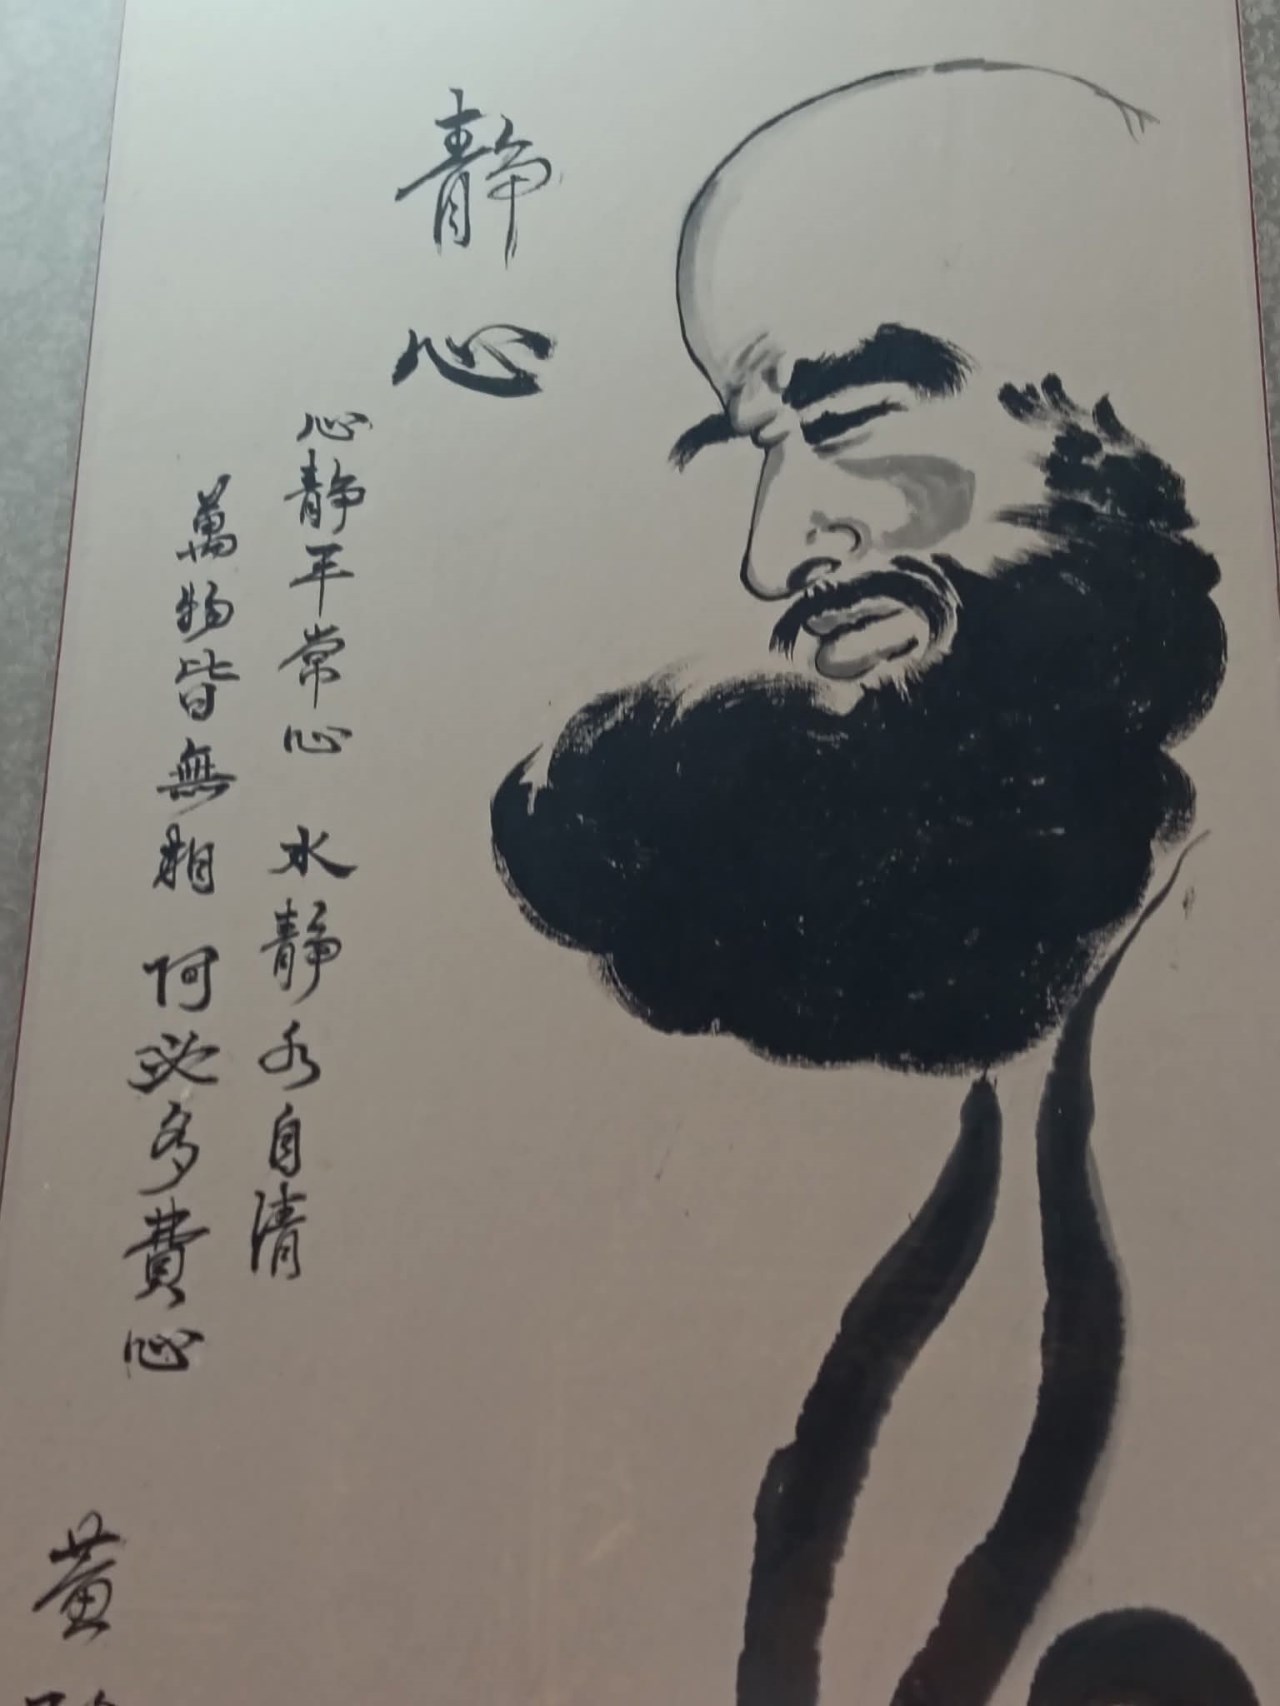 靜心
心靜平常心 水靜水自清
萬物皆無相 何必多費心
黄